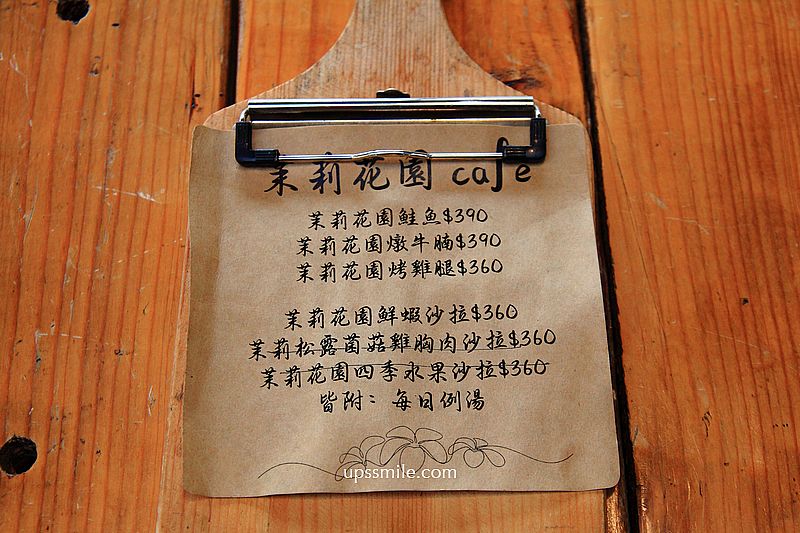 茉莉花園 cafe
茉莉花園鮭魚$390
茉莉花園燉牛腩$390
茉莉花園烤雞腿$360
茉莉花園鮮蝦沙拉$360
茉莉松露菌菇雞胸肉沙拉$360
茉莉花園四季水果沙拉$360
皆附：每日例湯
upssmile.com